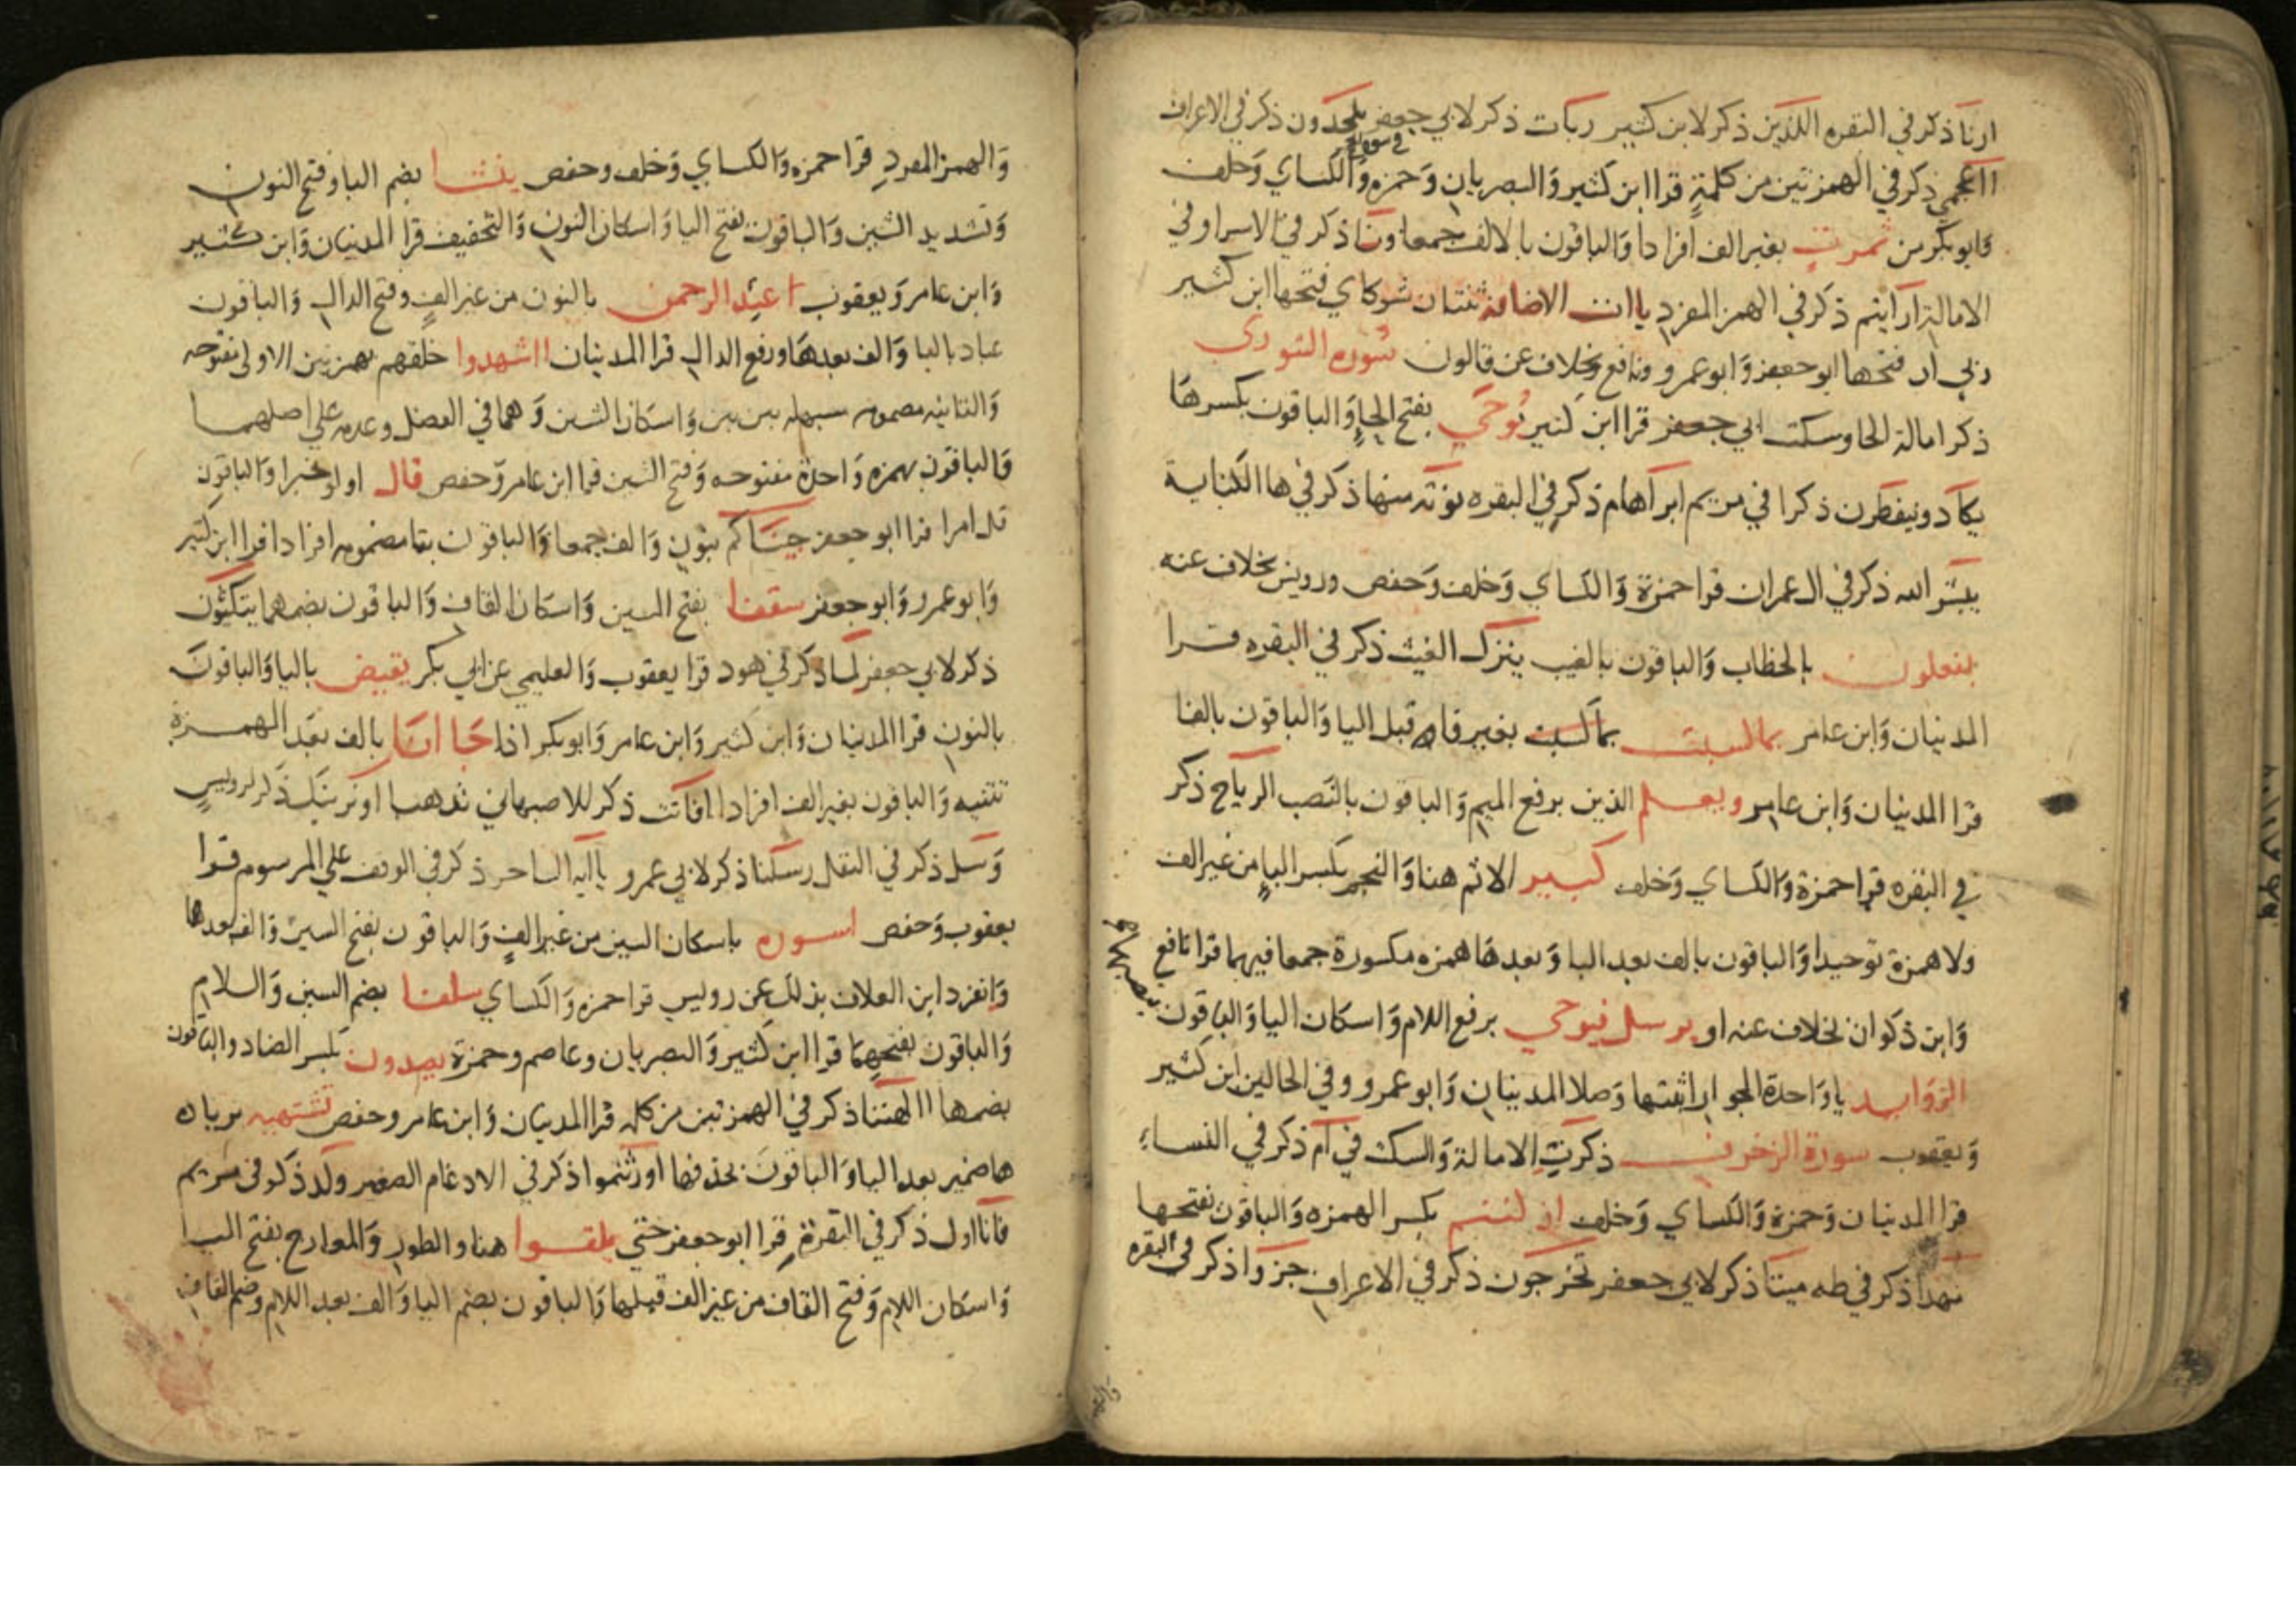 ارنا ذكر في البقره اللذين ذكر لابن كثير ربات ذكر لابي جعفر يلحدون ذكر في الاعراف
ااعجمي ذكر في الهمزتين من كلمة قرا ابن كثير والبصريان وحمزه والكساي وخلف
وابو بكر من ثمرت بغير الف افرادا والباقون بالالف جمعا ونا ذكر في الاسرا وفي
الامالة ارايتم ذكر في الهمز المفرد ياات الاضافة ثنتان شركاي فتحها ابن كثير
ربي ان فتحها ابو جعفر وابو عمرو ونافع بخلاف عن قالون سورة الشوري
ذكر امالة الحا وسكت ابي جعفر قرا ابن كثير يوحي بفتح الحا والباقون بكسرها
يكاد ويتفطرن ذكرا في مريم ابراهام ذكر في البقره نؤته منها ذكر في ها الكناية
يبشر الله ذكر في ال عمران قرا حمزة والكساي وخلف وحفص ورويس بخلاف عنه
يفعلون بالخطاب والباقون بالغيب ينزل الغيث ذكر في البقره قرا
المدنيان وابن عامر بما كسبت بما كسبت بغير فا قبل اليا والباقون بالفا
قرا المدنيان وابن عامر ويعلم الذين برفع الميم والباقون بالنصب الرياح ذكر
في البقره قرا حمزة والكساي وخلف كبير الاثم هنا والنجم بكسر البا من غير الف
ولا همزة توحيدا والباقون بالف بعد البا وبعدها همزه مكسورة جمعا فيهما قرا نافع
وابن ذكوان بخلاف عنه او يرسل فيوحي برفع اللام واسكان اليا والباقون بنصبهما
الزوايد يا واحدة الجوار اثبتها وصلا المدنيان وابو عمرو وفي الحالين ابن كثير
ويعقوب سورة الزخرف ذكرت الامالة والسكت في ام ذكر في النساء
قرا المدنيان وحمزة والكساي وخلف ان كنتم بكسر الهمزه والباقون بفتحها
مهدا ذكر في طه ميتا ذكر لابي جعفر تخرجون ذكر في الاعراف جزوا ذكر في البقره
والهمز المفرد قرا حمزه والكساي وخلف وحفص ينشا بضم اليا وفتح النون
وتشديد الشين والباقون بفتح اليا واسكان النون والتخفيف قرا المدنيان وابن كثير
وابن عامر ويعقوب عند الرحمن بالنون من غير الف وفتح الدال والباقون
عباد بالبا والف بعدها ورفع الدال قرا المدنيان ااشهدوا خلقهم بهمزتين الاولي مفتوحه
والثانيه مضمومه مسهله بين بين واسكان الشين وهما في الفصل وعدمه علي اصلهما
والباقون بهمزه واحدة مفتوحه وفتح الشين قرا ابن عامر وحفص قال اولو خبرا والباقون
قل امرا قرا ابو جعفر جيناكم بنون والف جمعا والباقون بتا مضمومه افرادا قرا ابن كثير
وابو عمرو وابو جعفر سقفا بفتح السين واسكان القاف والباقون بضمهما يتكئون
ذكر لابي جعفر لما ذكر في هود قرا يعقوب والعليمي عن ابي بكر يقيض باليا والباقون
بالنون قرا المدنيان وابن كثير وابن عامر وابو بكر اذا جاانا بالف بعد الهمزة
تثنيه والباقون بغير الف افرادا افانت ذكر للاصبهاني نذهبن او نرينك ذكر لرويس
وسل ذكر في النقل رسلنا ذكر لابي عمرو ياايه الساحر ذكر في الوقف علي المرسوم قرا
يعقوب وحفص اسورة باسكان السين من غير الف والباقون بفتح السين والف بعدها
وانفرد ابن العلاف بذلك عن رويس قرا حمزه والكساي سلفا بضم السين واللام
والباقون بفتحهما قرا ابن كثير والبصريان وعاصم وحمزة يصدون بكسر الصاد والباقون
بضمها االهتنا ذكر في الهمزتين من كلمه قرا المدنيان وابن عامر وحفص تشتهيه بزياده
ها ضمير بعد اليا والباقون بحذفها اورثتموا ذكر في الادغام الصغير ولد ذكر في مريم
فانا اول ذكر في البقرة قرا ابو جعفر حتي يلقوا هنا والطور والمعارج بفتح اليا
واسكان اللام وفتح القاف من غير الف قبلها والباقون بضم اليا والف بعد اللام وضم القاف